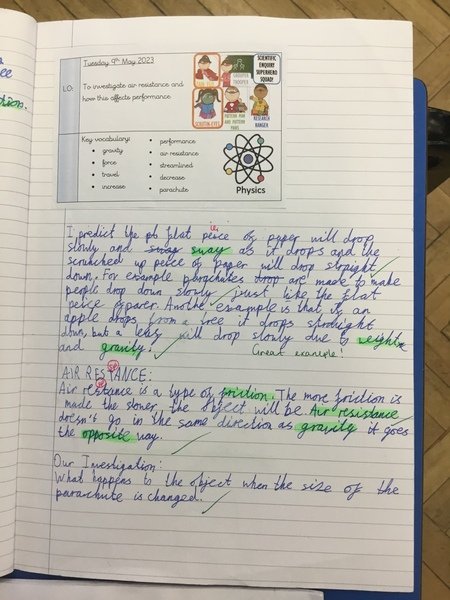 Tuesday 9th May 2023
L.O:
To investigate air resistance and
how this affects performance.
GROUPER
TROOPER
SCIENTIFIC
ENQUIRY
SUPERHERO
SQUAD
PATTERN MAN
AND PATTERN
PAWS
RESEARCH
RANGER
Key vocabulary:
gravity
force
travel
increase
performance
air resistance
streamlined
decrease
parachute
Physics
I predict the flat peice of paper will drop
ie
slowly and sway as it drops and the
scrunched up peice of paper will drop straight
down. For example parachutes are made to make
people drop down slowly just like the flat
peice of paper. Another example is that is an
apple drops from a tree it drops straight
down, but a leaf will drop slowly due to weight
and gravity.
Great example!
AIR RESTANCE:
Air restance is a type of friction. The more friction is
made the slower the object will be. Air resistance
doesn't go in the same direction as gravity it goes
the opposite way.
Our Investigation:
What happens to the object when the size of the
parachute is changed.